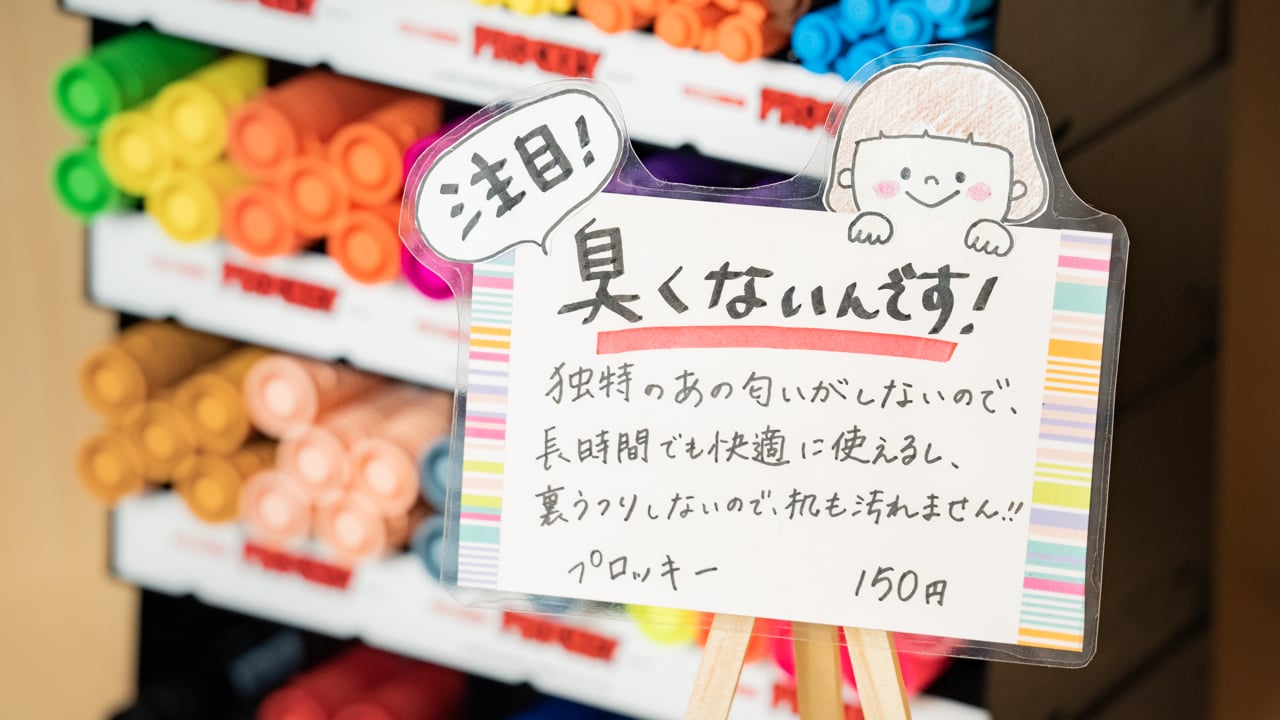 PROCKEY
PROCKEY
注目!
臭くないんです!
独特のあの匂いがしないので、
長時間でも快適に使えるし、
裏うつりしないので、机も汚れません!!
プロッキー 150円
PROCKEY
PROCKEY
PROCKEY